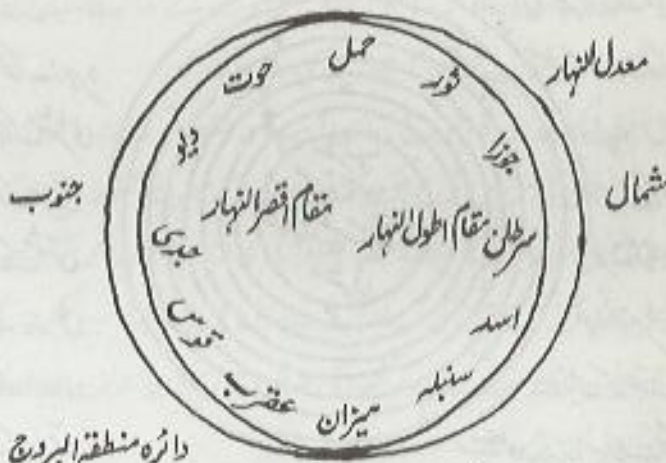 معدل النهار
شمال
جنوب
حمل
ثور
جوزا
سرطان
مقام اطول النهار
اسد
سنبلہ
میزان
عقرب
قوس
جدی
مقام اقصر النهار
حوت
دائرہ منطقۃ البروج